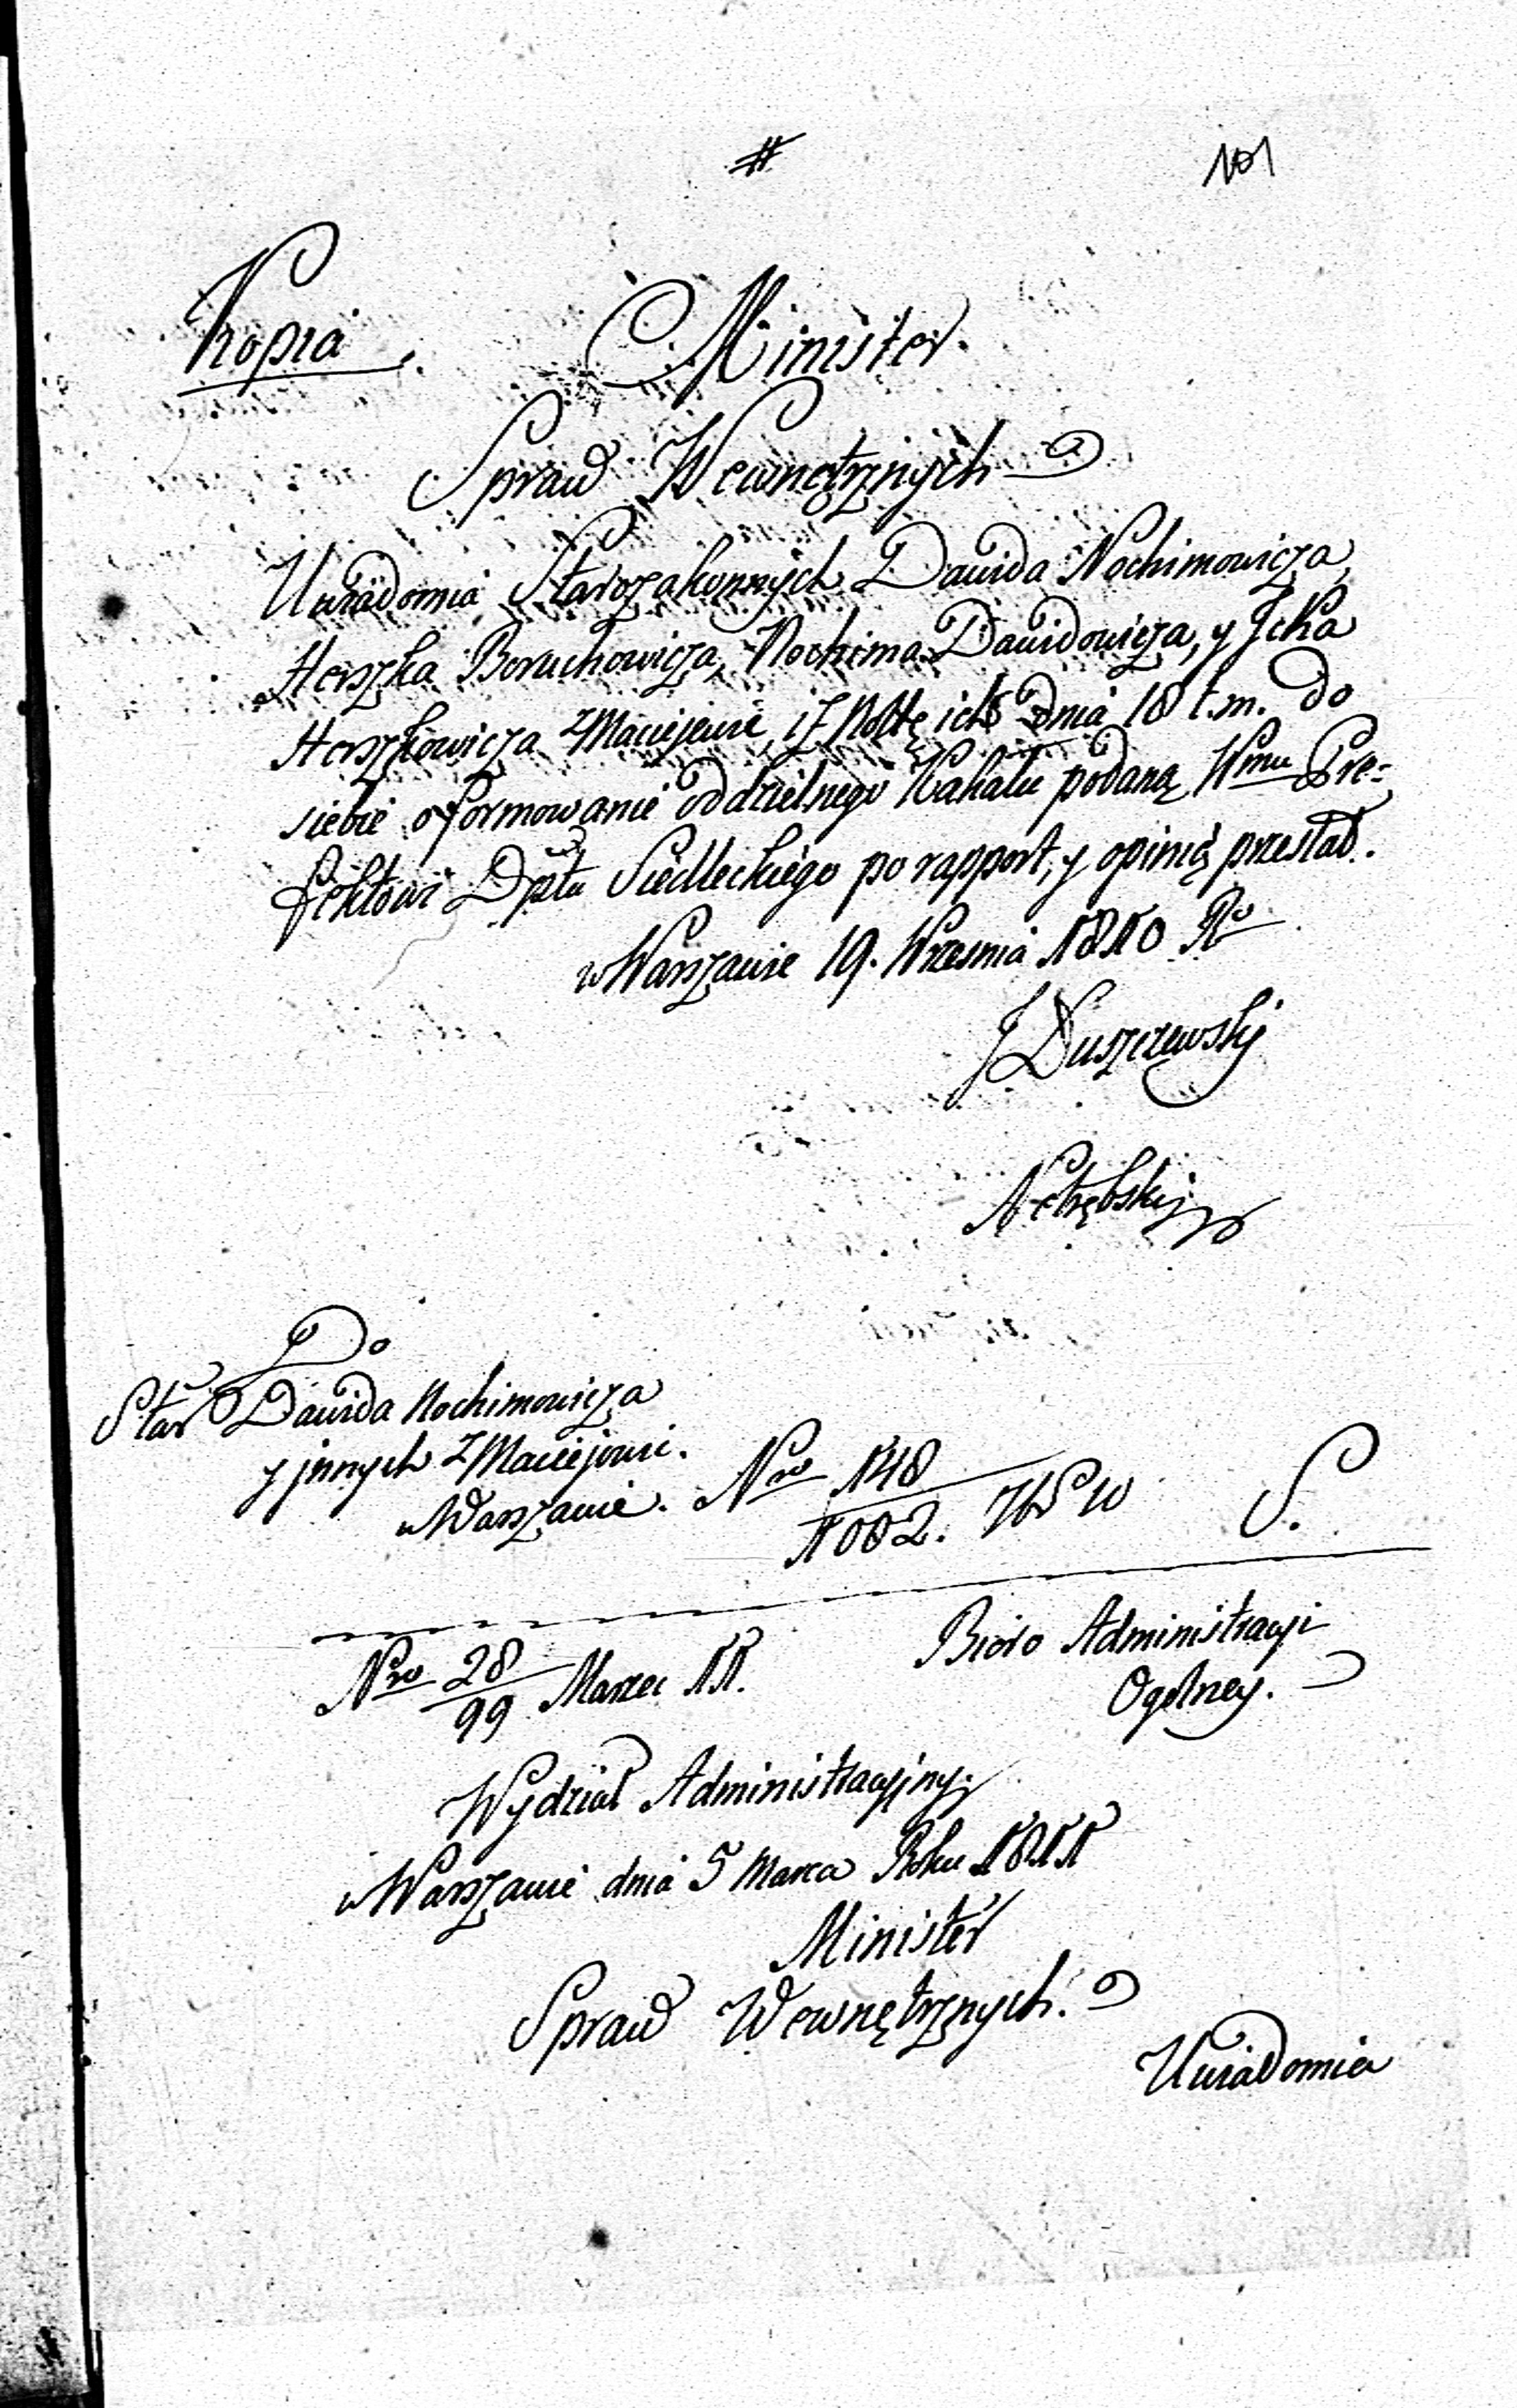 #
101
Kopia.
Minister
Spraw Wewnętrznych
Uwiadomia Starozakonnych Dawida Nochimowicza,
Herszka Boruchowicza, Nochima Dawidowicza, y Icka
Herszkowicza z Maciejowic, iż Notę ich dnia 18 t.m. do
siebie o formowanie oddzielnego Kahału podaną Wmu Pre=
fektowi Dptu Siedleckiego po rapport, y opinią przesłał.
w Warszawie 19. Wrzesnia 1810 Ro
J Łuszczewski
Netrębski
Do
Star Dawida Nochimowicza
y innych z Maciejowic.
w Warszawie. Nro 148
1002. S.
Nro 28 Bióro Administracyi
99 Marzec 11. Ogolney.
Wydział Administracyjny
w Warszawie dnia 5 Marca Roku 1811
Minister
Spraw Wewnętrznych.
Uwiadomia